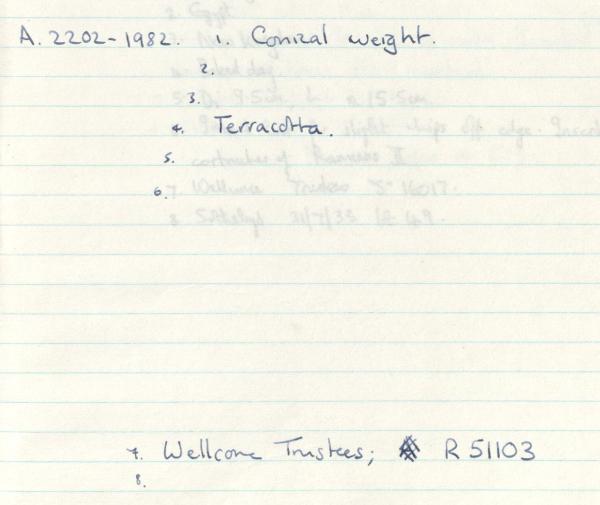 A. 2202-1982. 1. Conical weight.
2.
3.
4. Terracotta.
5.
6.
7. Wellcome Trustees; R 51103
8.